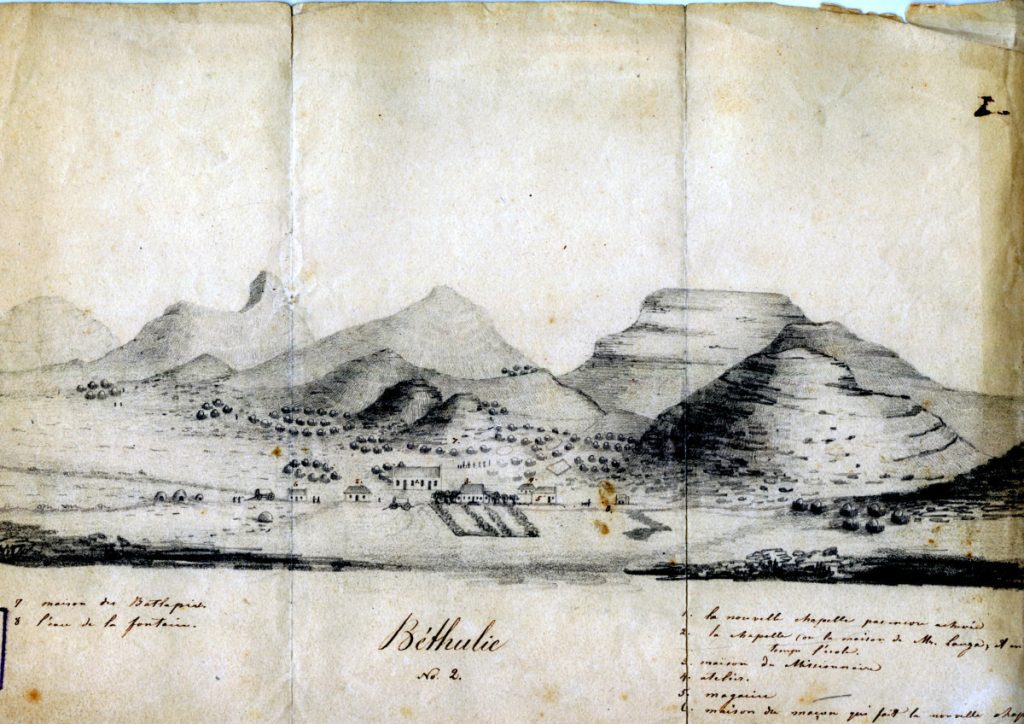 7 maison des Batlapis.
8 l'eau de la fontaine.
Béthulie
No. 2.
1. la nouvelle chapelle pas encore
2. la chapelle (ou la maison de Mr. Lauga, et en
temps l'école.
3. maison du Missionnaire
4. atelier.
5. magasin
6. maison du maçon qui fait la nouvelle chap